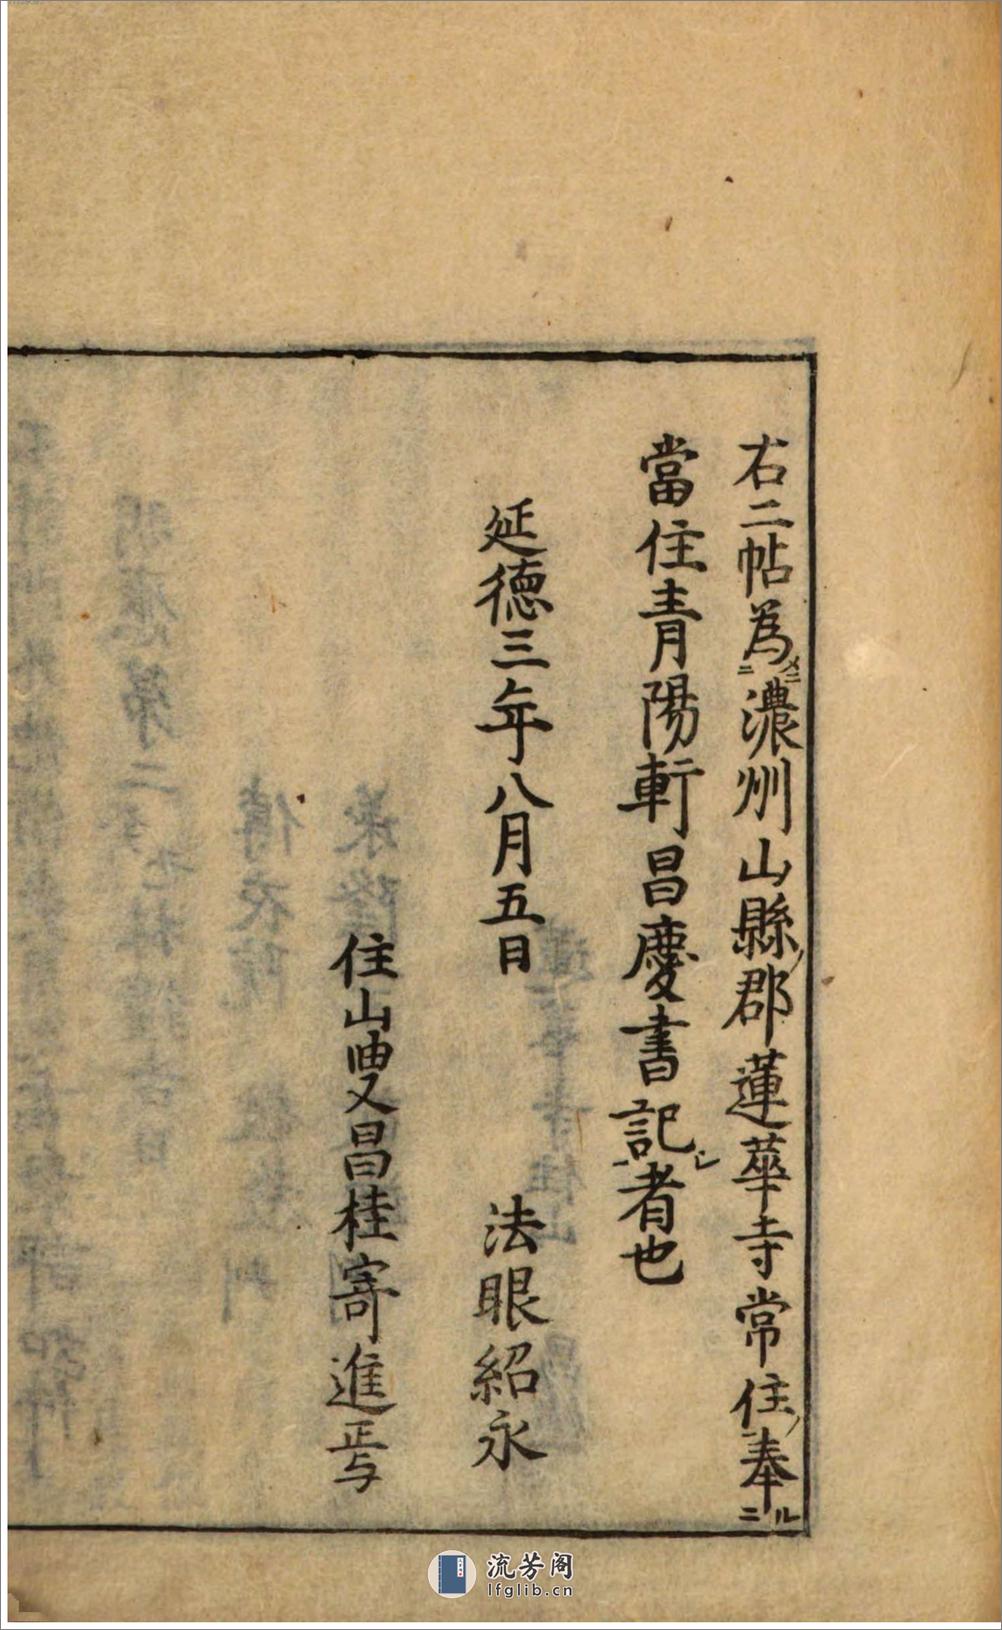 右二帖為メニ二濃州山縣ノ郡蓮華寺常住ノ奉ル二
當住青陽軒昌慶書記シ者也
延德三年八月五日 法眼紹永
住山叟昌桂寄進焉
流芳阁
lfglib.cn